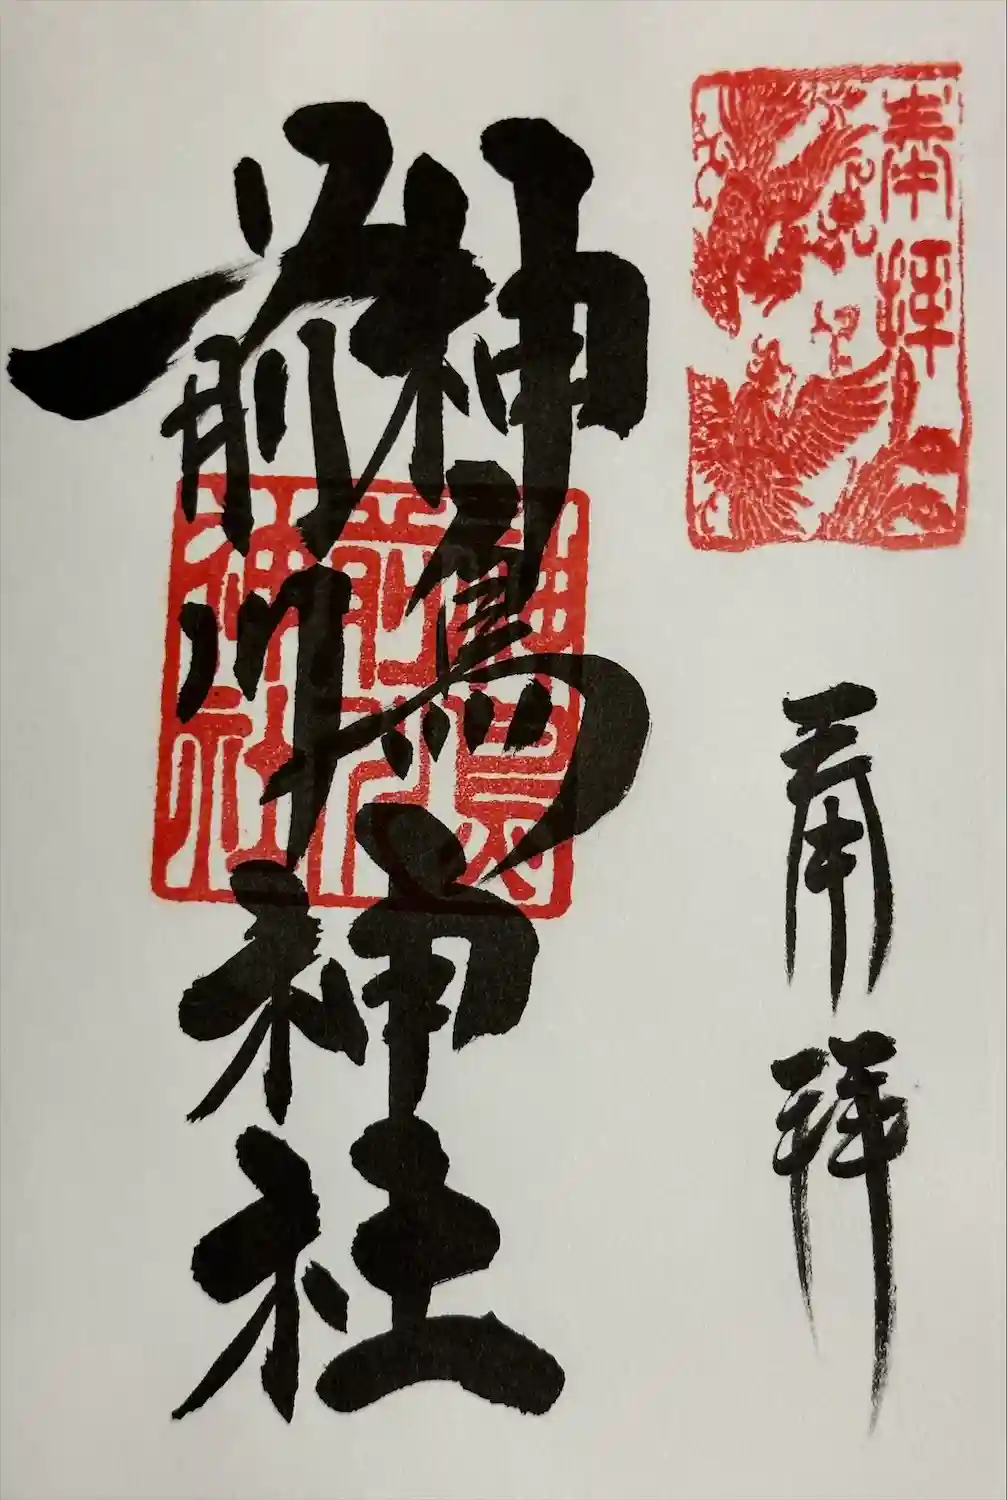 奉拝
奉拝
神鳥
前川
神社
神鳥
前川
神社